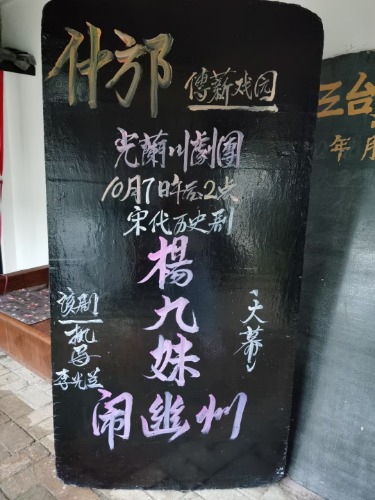 什邡
傳薪戏园
光蘭川劇團
10月7日午后2点
宋代历史剧
楊九妹
闹幽州
大幕
该剧
李光兰
三台
年 月